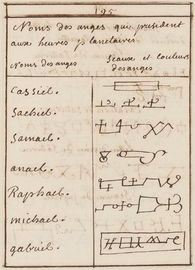 125
Noms des anges qui président
aux heures planetaires.
Noms des anges
Sceaux et couleurs
des anges
Cassiel.
Sachiel.
Samael.
anael.
Raphael.
michael.
gabriel.